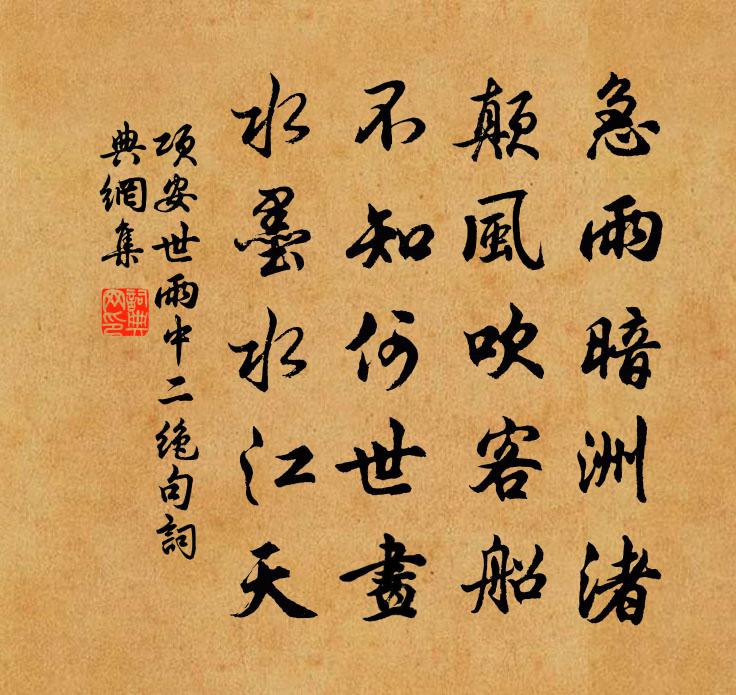 急雨暗洲渚
顛風吹客船
不知何世畫
水墨水江天
項安世雨中二絶句詞
典網集
詞典網印